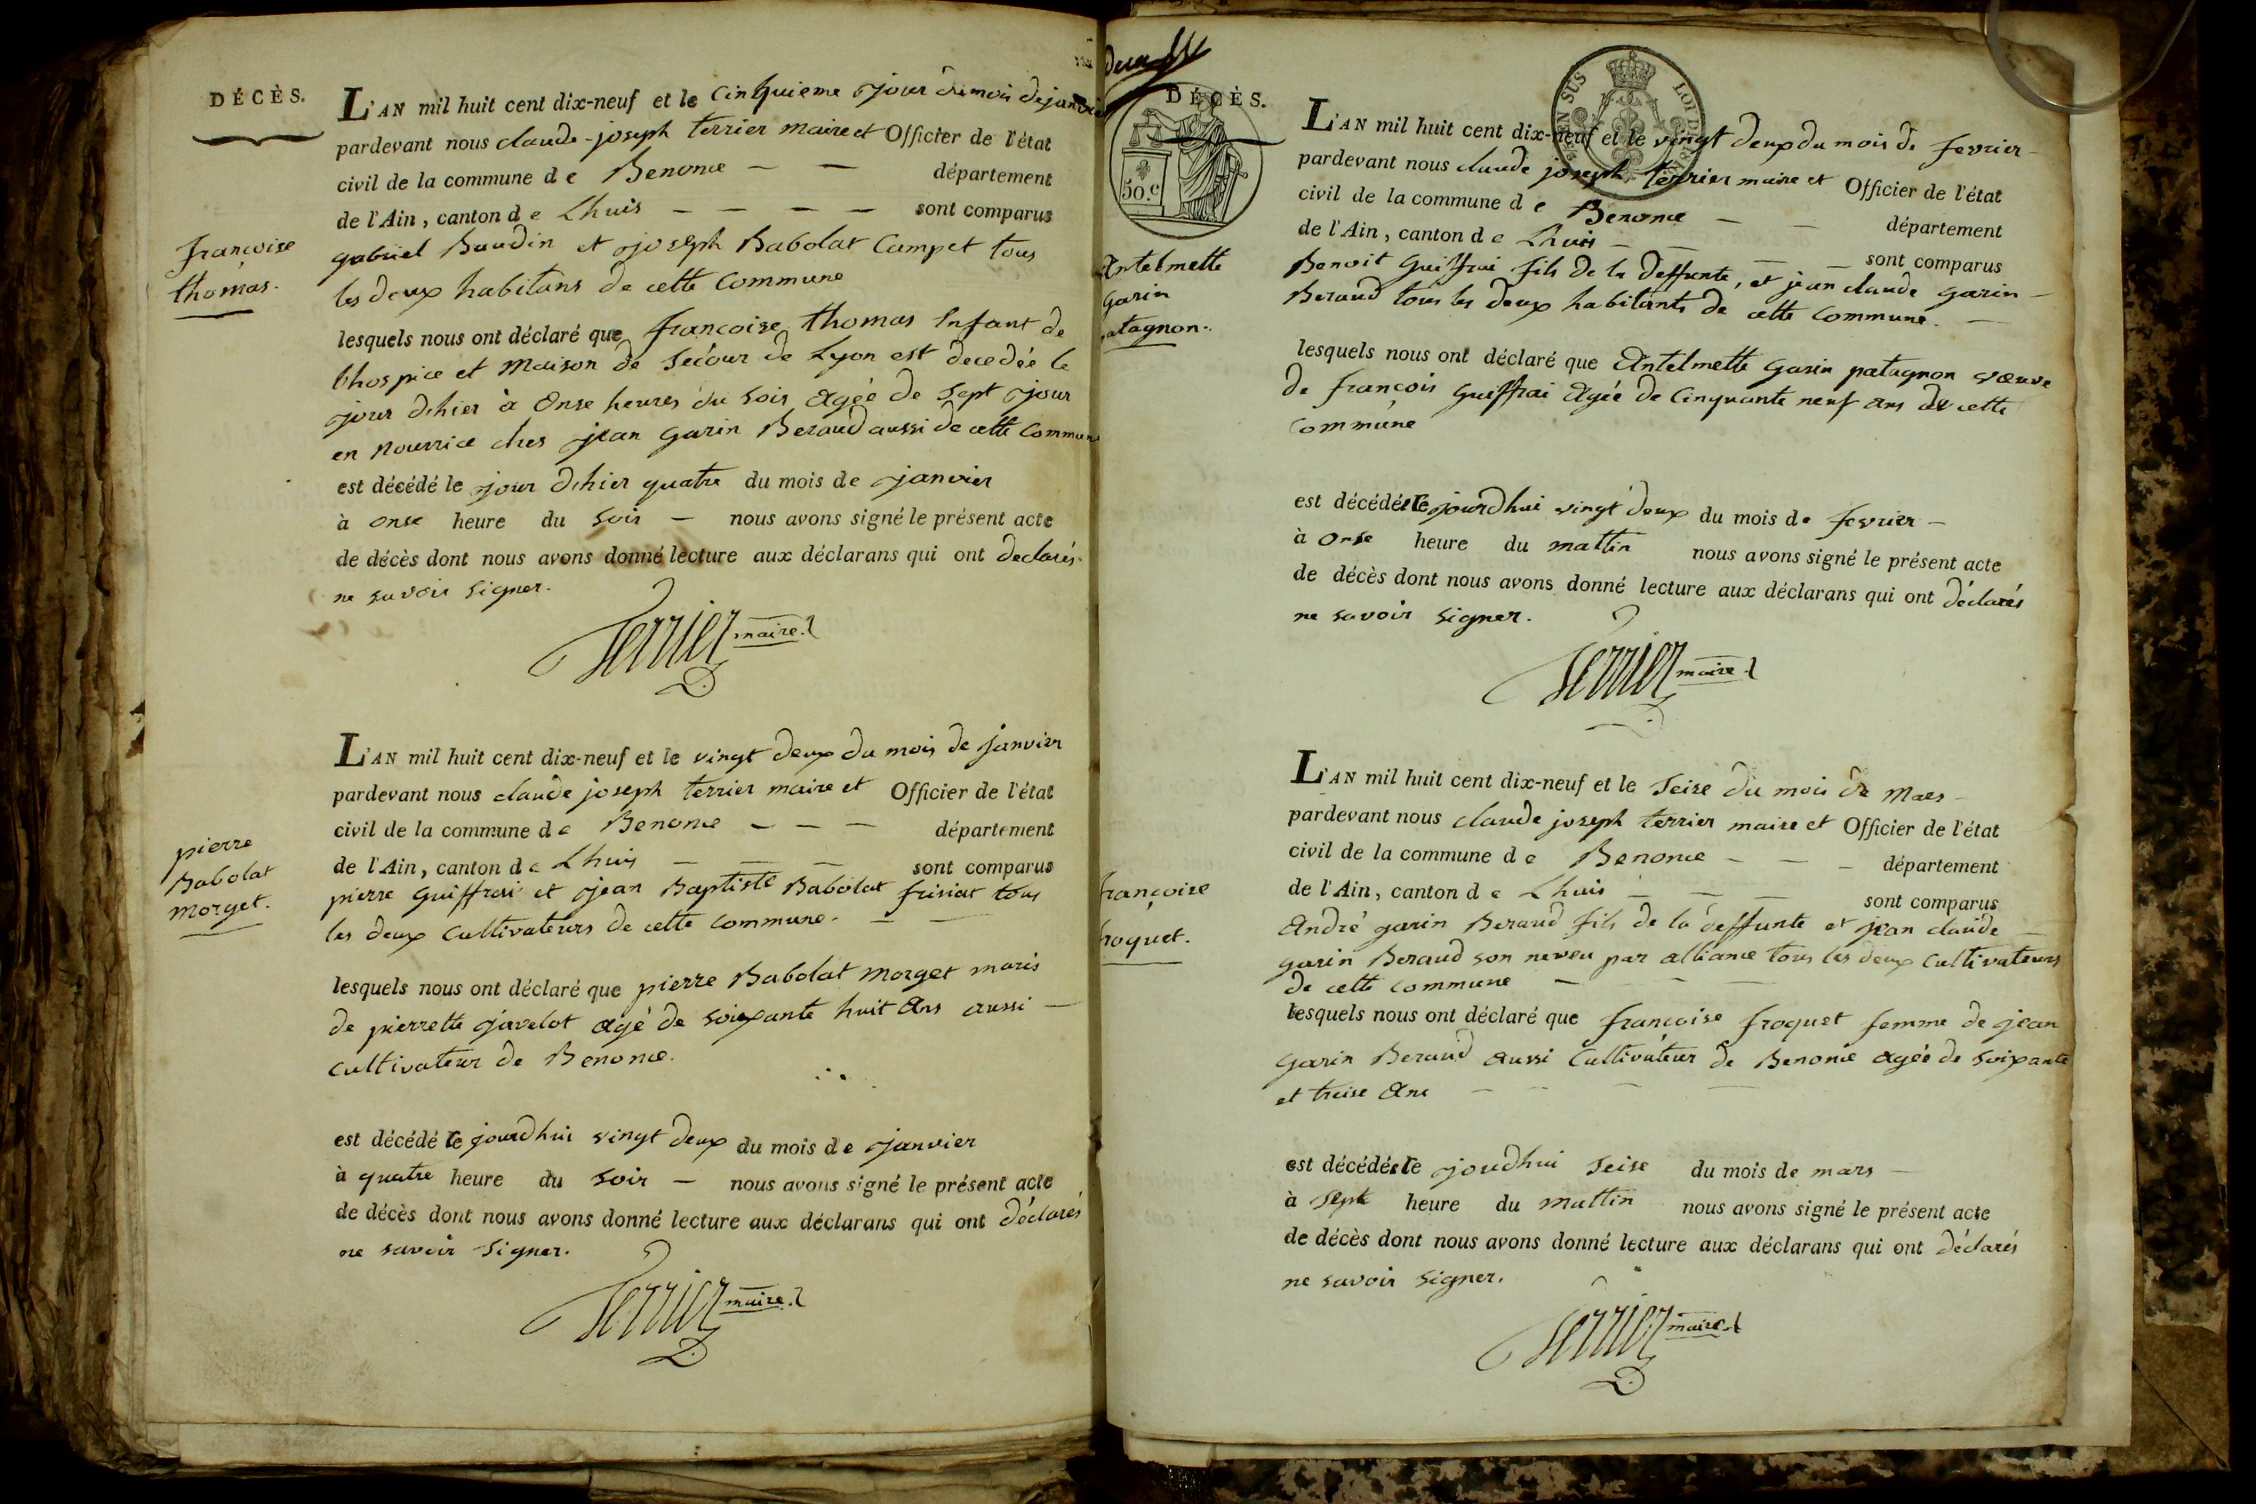 DÉCÈS.
L'AN mil huit cent dix-neuf et le Cinquieme jour du mois de janvier
pardevant nous claude-joseph terrier maire et Officier de l'état
civil de la commune de Benonce — — département
de l'Ain, canton de Lhuis — — — — sont comparus
gabriel Baudin et joseph Babolat Campet tous
les deux habitans de cette Commune
françoise
thomas.
lesquels nous ont déclaré que françoise thomas Enfant de
l'hospice et Maison de Secour de Lyon est decedée le
jour d'hier à Onse heures du soir Agée de Sept jour
en Nourrice ches jean garin Beraud aussi de cette Commune
est décédé le jour d'hier quatre du mois de janvier
à onse heure du soir — nous avons signé le présent acte
de décès dont nous avons donné lecture aux déclarans qui ont declarés
ne savoir signer.
Terrier maire.
L'AN mil huit cent dix-neuf et le vingt deux du mois de janvier
pardevant nous claude joseph terrier maire et Officier de l'état
civil de la commune de Benonce — — — département
de l'Ain, canton de Lhuis — — — sont comparus
pierre guiffrai et jean Baptiste Babolat frisiat tous
les deux Cultivateurs de cette commune. — —
pierre
Babolat
morget.
lesquels nous ont déclaré que pierre Babolat morget maris
de pierrette javelot agé de soixante huit Ans aussi —
cultivateur de Benonce.
est décédé le jourdhui vingt deux du mois de janvier
à quatre heure du soir — nous avons signé le présent acte
de décès dont nous avons donné lecture aux déclarans qui ont déclarés
ne savoir signer.
Terrier maire.
DÉCÈS.
50.c
L'AN mil huit cent dix-neuf et le vingt deux du mois de fevrier —
pardevant nous claude joseph terrier maire et Officier de l'état
civil de la commune de Benonce — — département
de l'Ain, canton de Lhuis — — — — sont comparus
Benoit Guiffrai fils de la deffunte, et jean claude garin —
Beraud tous les deux habitants de cette Commune. —
Antelmette
garin
patagnon.
lesquels nous ont déclaré que Antelmette garin patagnon vœuve
de françois guiffrai Agée de Cinquante neuf ans de cette
commune
est décédée le jourdhui vingt deux du mois de fevrier —
à onse heure du mattin nous avons signé le présent acte
de décès dont nous avons donné lecture aux déclarans qui ont déclarés
ne savoir signer.
Terrier maire.
L'AN mil huit cent dix-neuf et le Seise du mois de Mars —
pardevant nous claude joseph terrier maire et Officier de l'état
civil de la commune de Benonce — — — département
de l'Ain, canton de Lhuis — — — sont comparus
André garin Beraud fils de la deffunte et jean claude —
garin Beraud son neveu par alliance tous les deux Cultivateurs
de cette commune — — — —
françoise
froquet.
lesquels nous ont déclaré que françoise froquet femme de jean
garin Beraud aussi Cultivateur de Benonce agée de soixante
et treise Ans — — — —
est décédée le joudhui Seise du mois de mars —
à sept heure du mattin nous avons signé le présent acte
de décès dont nous avons donné lecture aux déclarans qui ont déclarés
ne savoir signer.
Terrier maire.